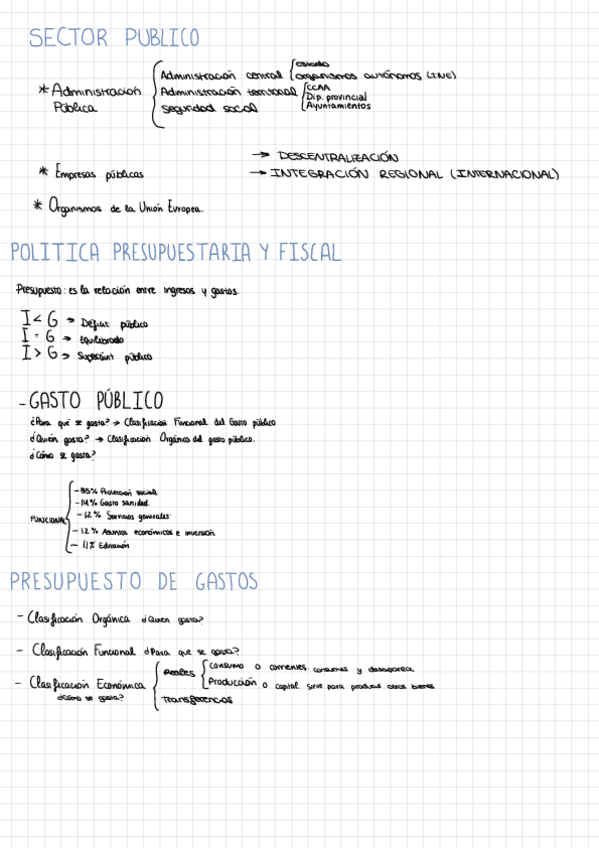 SECTOR PUBLICO
* Administración Pública
Administración central
Estado
organismos autónomos (INE)
Administración territorial
CCAA
Dip. provincial
Ayuntamientos
seguridad social
* Empresas públicas
→ DESCENTRALIZACIÓN
→ INTEGRACIÓN REGIONAL (INTERNACIONAL)
* Organismos de la Unión Europea.
POLITICA PRESUPUESTARIA Y FISCAL
Presupuesto: es la relación entre ingresos y gastos.
I < G → Déficit público
I = G → Equilibrado
I > G → Superávit público
- GASTO PÚBLICO
¿Para qué se gasta? → Clasificación Funcional del Gasto público
¿Quién gasta? → Clasificación Orgánica del gasto público.
¿Cómo se gasta?
FUNCIONAL
Protección social
- 14% Gasto sanidad.
- 12% Servicios generales
- 12% Asuntos económicos e inversión
- 11% Educación
PRESUPUESTO DE GASTOS
- Clasificación Orgánica ¿Quien gasta?
- Clasificación Funcional ¿Para que se gasta?
- Clasificación Económica
¿Cómo se gasta?
Reales
Consumo o corrientes consumes y desaparea
Producción o capital sirve para producir otros bienes
Transferencias